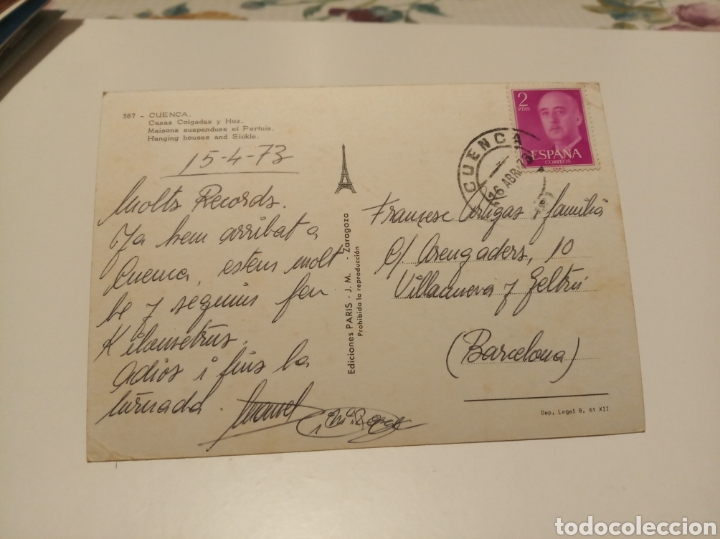 587 - CUENCA.
Casas Colgadas y Hoz.
Maisons suspendues et Pertuis.
Hanging houses and Sickle.
15-4-73
Molts Records.
Ja hem arribat a
Cuenca, estem molt
be y seguim fen
Kilometrus.
Adios i fins la
turnada.
Ediciones PARIS - J. M. - Zaragoza
Prohibida la reproducción
2
PTAS
ESPAÑA
CORREOS
CUENCA
16 ABR 73
Francesc Artigas i familia
C/ Arengaders, 10
Villanueva y Geltrú
(Barcelona)
Dep. Legal B. XII
todocoleccion
todocoleccion.net